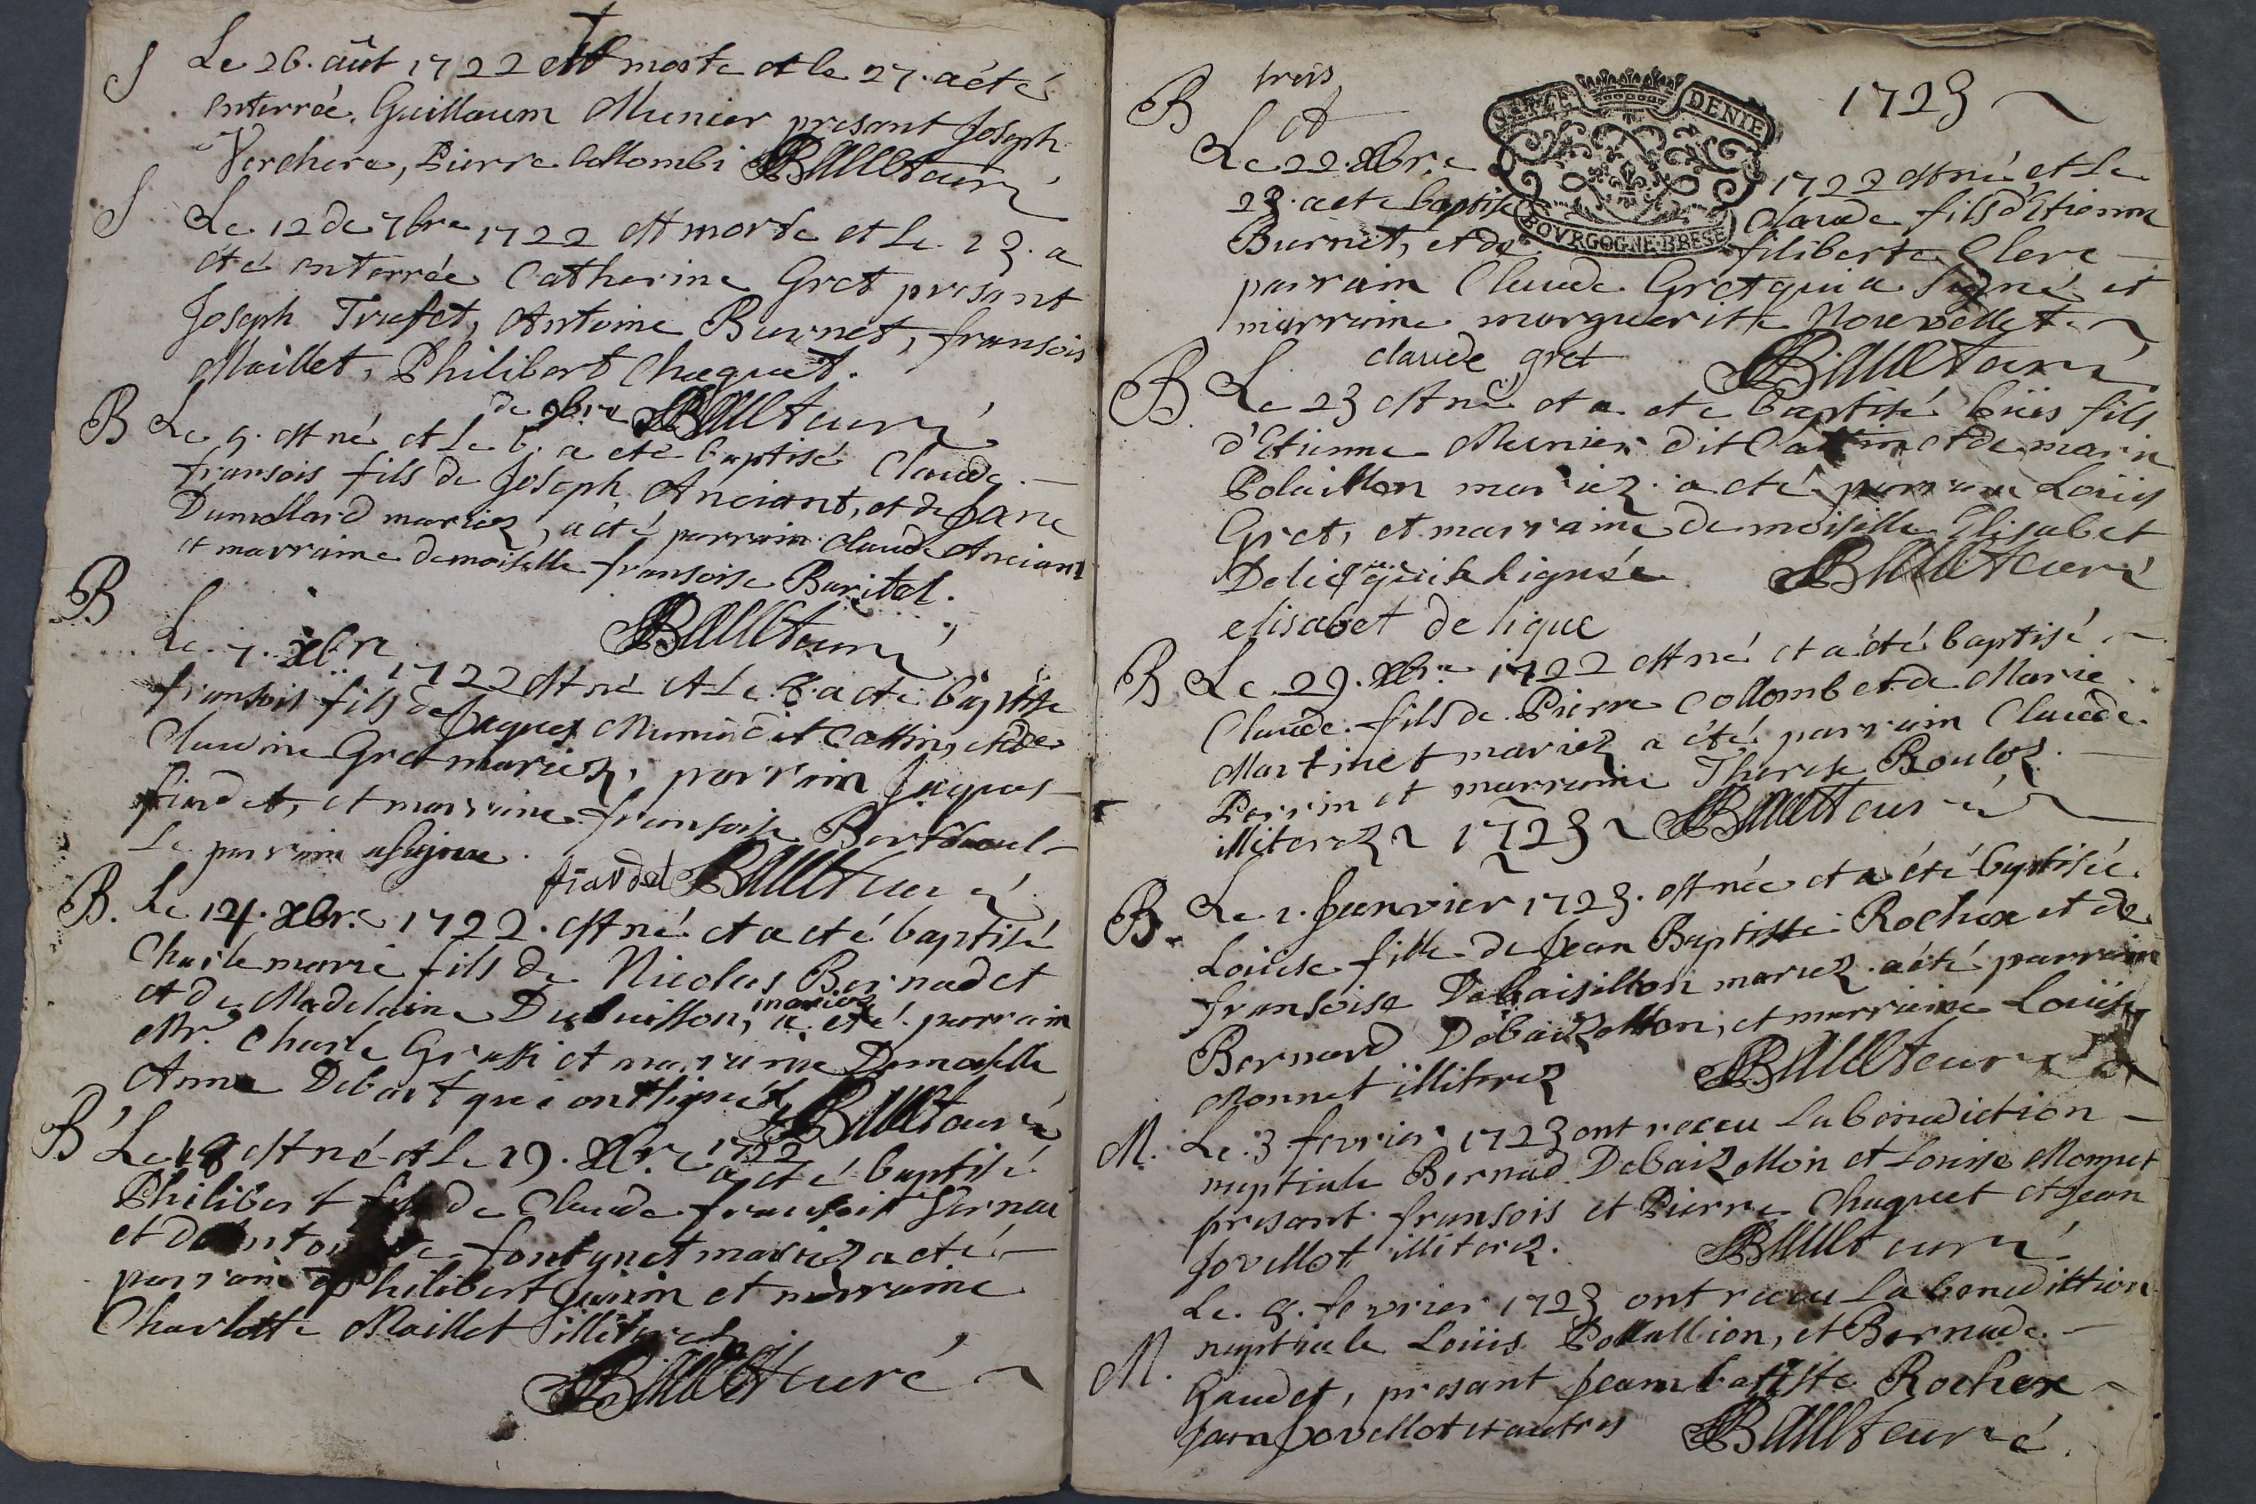 S Le 26. aût 1722 est morte et le 27. a été
enterrée Guillaum Munier presant Joseph
Verchere, Pierre Collombi Baillet curé
S Le 12 de 7bre 1722 est morte et le 13. a
été enterrée Catherine Gret presant
Joseph Trufet, Antoine Burnet, fransois
Maillet, Philibert Chaquet.
de 9bre Baillet curé
B Le 5. est né et le 6. a eté baptisé Claude
fransois fils de Joseph Anciant, et de Jane
Dumollard mariez, a été parrain Claude Anciant
et marraine demoiselle fransoise Buritel.
Baillet curé
B Le 7. xbre 1722 est né et le 8. a eté baptisé
fransois fils de Jaques Munier dit Cattin, et de
Claudine Gret mariez, parrain Jaques
fiardet, et marraine fransoise Berthoud
Le parrain a signé. fiardet Baillet curé
B. Le 14. xbre 1722. est né et a eté baptisé
Charle marie fils de Nicolas Bernadet
et de Madelaine Dubuisson, mariez a eté parrain
Mr. Charle Grassi et marraine Demoiselle
Anne Debart qui ont signéz Baillet curé
B Le 18 est né et le 19. xbre 1722 a eté baptisé
Philibert fils de Claude fransois Vernai
et d'Antoinette fontynet mariez a eté
parrain Philibert Guirin et marraine
Charlotte Maillet illiterez
Baillet curé
trois 1723
B et
Le 22. xbre 1722 est né et le
GAR. ZE DENIE
BOVRGOGNE BRESE
23. a eté baptisé Claude fils d'Etienne
Burnet, et de filiberte Clerc
parrain Claude Gret qui a signé et
marraine marguerite Nouvellet.
claude gret Baillet curé
B Le 23 est né et a eté baptisé Loüis fils
d'Etienne Munier dit Cattin et de marie
Polaillon mariez. a eté parrain Loüis
Gret, et marraine demoiselle Elisabet
Delique qui a signée Baillet curé
elisabet de lique
B Le 29. xbre 1722 est né et a été baptisé
Claude fils de Pierre Collomb et de Marie
Martinet mariez a été parrain Claude
Perrin et marraine Therese Rouloz
illiterez 1723 Baillet curé
B. Le 1. Janvier 1723. est née et a été baptisée
Loüise fille de Jean Baptiste Rochex et de
fransoise Debaisillon mariez. a été parrain
Bernard Debaizellon, et marraine Loüise
Monnet illiterez Baillet curé
M. Le 3 fevrier 1723 ont receu la bénédiction
nuptiale Bernad Debaizellon et Louise Monnet
presant fransois et Pierre Chaquet et Jean
Jovellot illiterez. Baillet curé
Le. 9. fevrier 1723 ont receu la benedittion
M. nuptiale Loüis Pollallion, et Bernade
Gaudet, presant Jeam batiste Rochex
Jean Jovellot et autres Baillet curé.